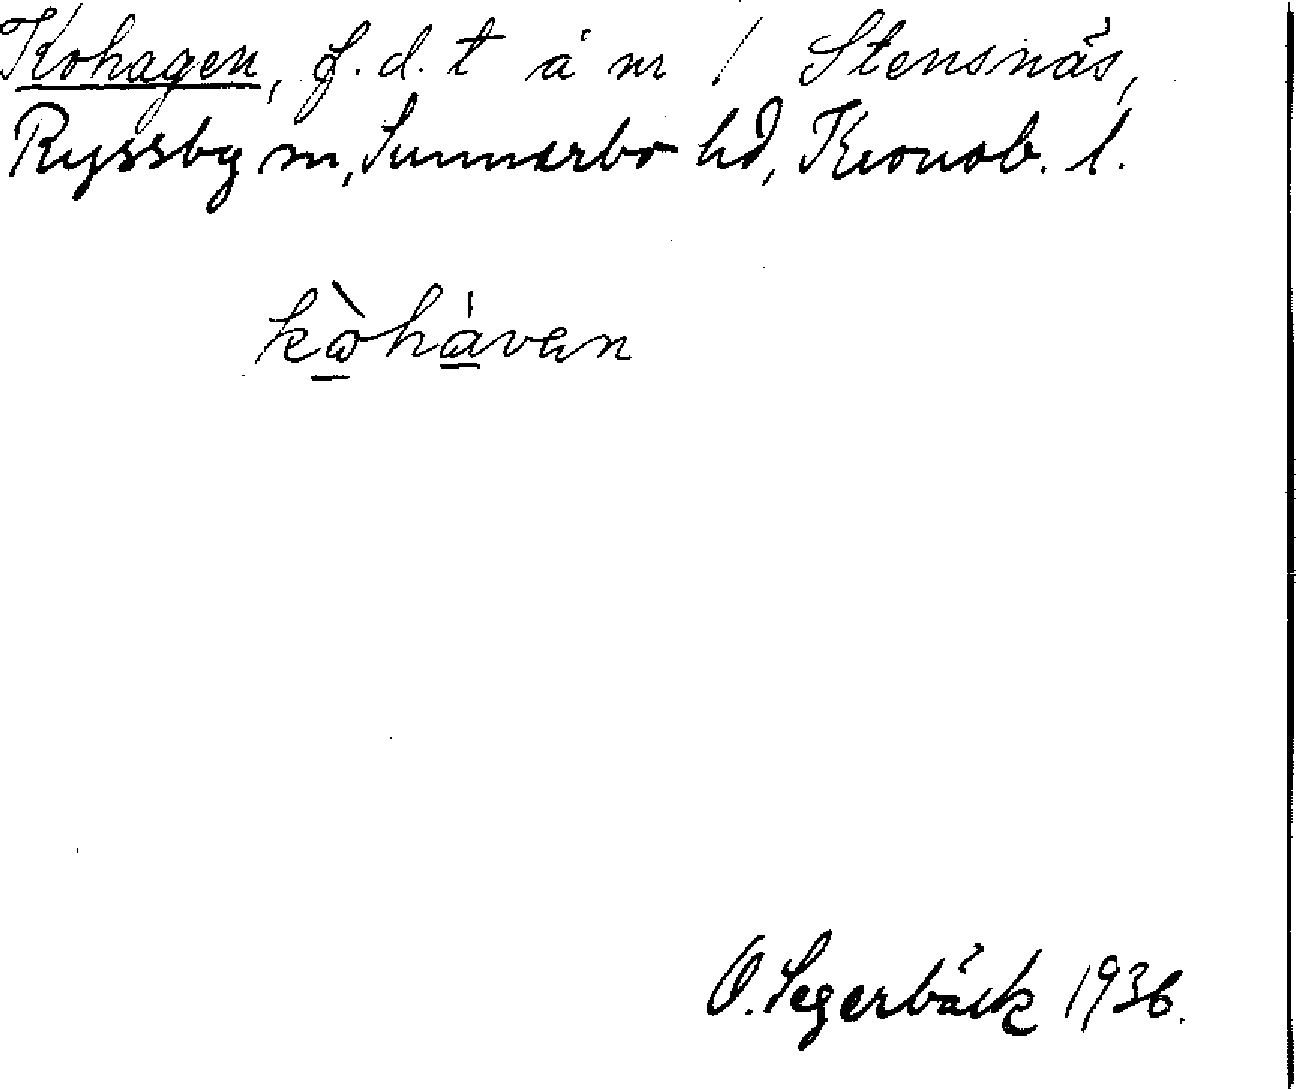 Kohagen, f.d. t å nr 1 Stensnäs,
Ryssby sn, Sunnerbo hd, Kronob. l.
kòhávan
O. Segerbäck 1936.